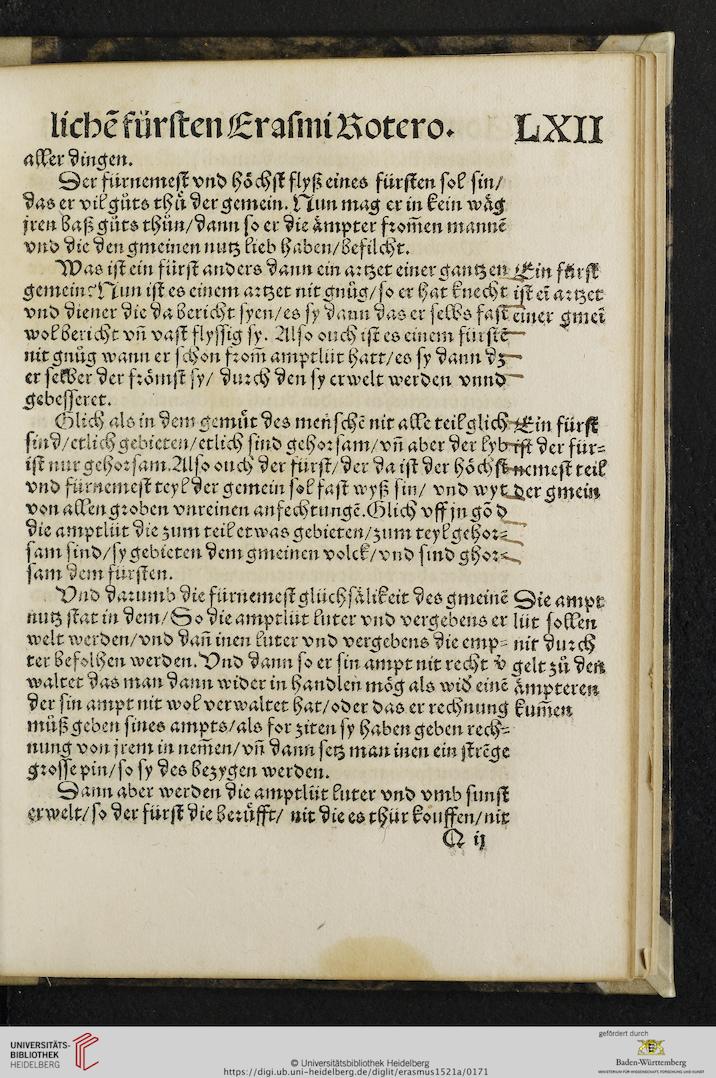 lichē fürsten Erasmi Rotero. LXII
aller dingen.
Der fürnemest vnd höchst flyß eines fürsten sol sin/
das er vil gůts thů der gemein. Nun mag er in kein wäg
jren baß gůts thůn/dann so er die ämpter from̃en mannē
vnd die den gmeinen nutz lieb haben/befilcht.
Was ist ein fürst anders dann ein artzet einer gantzen
gemein? Nun ist es einem artzet nit gnůg/so er hat knecht
vnd diener die da bericht syen/es sy dann das er selbs fast
wol bericht vñ vast flyssig sy. Also ouch ist es einem fürstē
nit gnůg wann er schon from̃ amptlüt hatt/es sy dann dz
er selber der frömst sy/ durch den sy erwelt werden vnnd
gebesseret.
Glich als in dem gemüt des menschē nit alle teil glich
sind/etlich gebieten/etlich sind gehorsam/vñ aber der lyb
ist nur gehorsam. Also ouch der fürst/der da ist der höchst
vnd fürnemest teyl der gemein sol fast wyß sin/ vnd wyt
von allen groben vnreinen anfechtungē. Glich vff jn gō d
die amptlüt die zum teil etwas gebieten/zum teyl gehor⸗
sam sind/sy gebieten dem gmeinen volck/vnd sind ghor⸗
sam dem fürsten.
Vnd darumb die fürnemest glüchsälikeit des gmeinē
nutz stat in dem/So die amptlüt luter vnd vergebens er
welt werden/vnd dañ inen luter vnd vergebens die emp⸗
ter befolhen werden. Vnd dann so er sin ampt nit recht v̓
waltet das man dann wider in handlen mög als wid̓ einē
der sin ampt nit wol verwaltet hat/oder das er rechnung
müß geben sines ampts/als for ziten sy haben geben rech⸗
nung von jrem in nem̃en/vñ dann setz man inen ein strēge
grosse pin/so sy des bezygen werden.
Dann aber werden die amptlüt luter vnd vmb sunst
erwelt/so der fürst die berüfft/ nit die es thür kouffen/nit
Q ij
Ein fürst
ist eī artzet
einer gmeī
Ein fürst
ist der für⸗
nemest teil
der gmein
Die ampt
lüt sollen
nit durch
gelt zů den
ämpteren
kum̃en
UNIVERSITÄTS-
BIBLIOTHEK
HEIDELBERG
© Universitätsbibliothek Heidelberg
https://digi.ub.uni-heidelberg.de/diglit/erasmus1521a/0171
gefördert durch
Baden-Württemberg
MINISTERIUM FÜR WISSENSCHAFT, FORSCHUNG UND KUNST